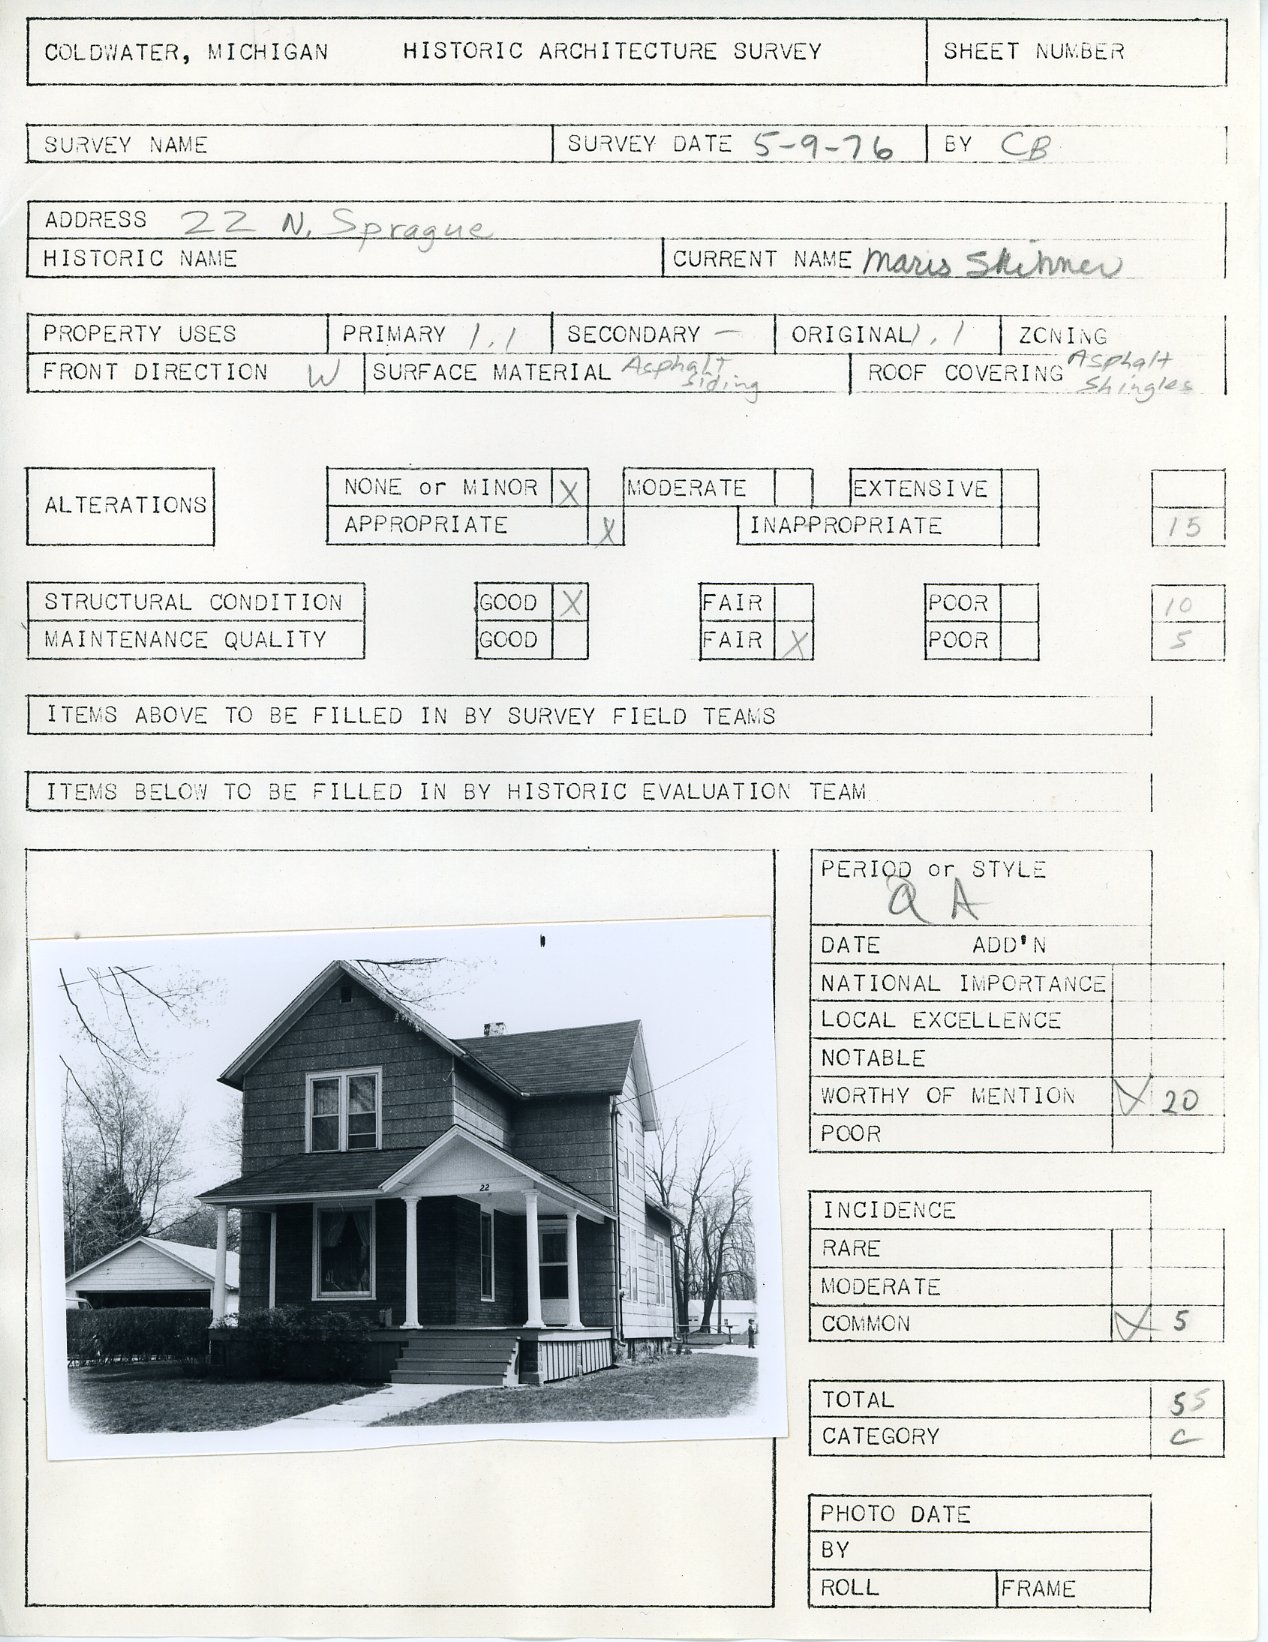 COLDWATER, MICHIGAN HISTORIC ARCHITECTURE SURVEY SHEET NUMBER
SURVEY NAME SURVEY DATE 5-9-76 BY CB
ADDRESS 22 N. Sprague
HISTORIC NAME CURRENT NAME Maris Skinner
PROPERTY USES PRIMARY 1.1 SECONDARY - ORIGINAL 1.1 ZONING
FRONT DIRECTION W SURFACE MATERIAL Asphalt siding ROOF COVERING Asphalt Shingles
ALTERATIONS NONE or MINOR X MODERATE EXTENSIVE
APPROPRIATE X INAPPROPRIATE 15
STRUCTURAL CONDITION GOOD X FAIR POOR 10
MAINTENANCE QUALITY GOOD FAIR X POOR 5
ITEMS ABOVE TO BE FILLED IN BY SURVEY FIELD TEAMS
ITEMS BELOW TO BE FILLED IN BY HISTORIC EVALUATION TEAM
PERIOD or STYLE
QA
DATE ADD'N
NATIONAL IMPORTANCE
LOCAL EXCELLENCE
NOTABLE
WORTHY OF MENTION X 20
POOR
INCIDENCE
RARE
MODERATE
COMMON X 5
TOTAL 55
CATEGORY C
PHOTO DATE
BY
ROLL FRAME
22